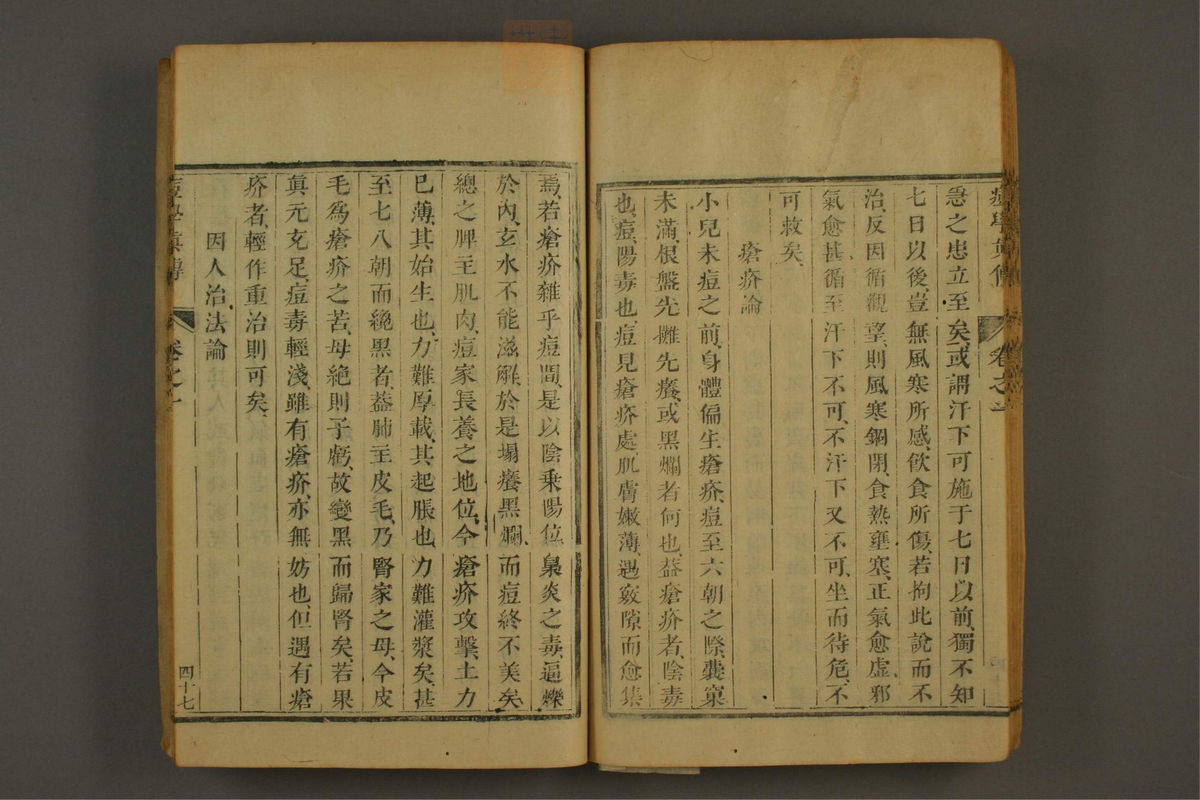 痘學真傳 卷之一
急之患立至矣、或謂汗下可施于七日以前、獨不知
七日以後、豈無風寒所感、飲食所傷、若拘此說而不
治、反因循觀望、則風寒錮閉、食熱壅塞、正氣愈虛、邪
氣愈甚、循至汗下不可、不汗下又不可、坐而待危、不
可救矣、
瘡疥論
小兒未痘之前、身體偏生瘡疥、痘至六朝之際、囊窠
未滿、根盤先攤先癢、或黑爛者何也、蓋瘡疥者、陰毒
也、痘、陽毒也、痘見瘡疥處、肌膚嫩薄、遇竅隙而愈集
焉、若瘡疥雜乎痘間、是以陰乘陽位、梟炎之毒、逼爍
於內、玄水不能滋解、於是塌癢黑爛、而痘終不美矣、
總之脾主肌肉、痘家長養之地位、今瘡疥攻擊、土力
已薄、其始生也、力難厚載、其起脹也、力難灌漿矣、甚
至七八朝而純黑者、蓋肺主皮毛、乃腎家之母、今皮
毛為瘡疥之苦、母絕則子虧、故變黑而歸腎矣、若果
眞元充足、痘毒輕淺、雖有瘡疥、亦無妨也、但遇有瘡
疥者、輕作重治則可矣、
因人治法論
痘學眞傳 卷之一 四十七